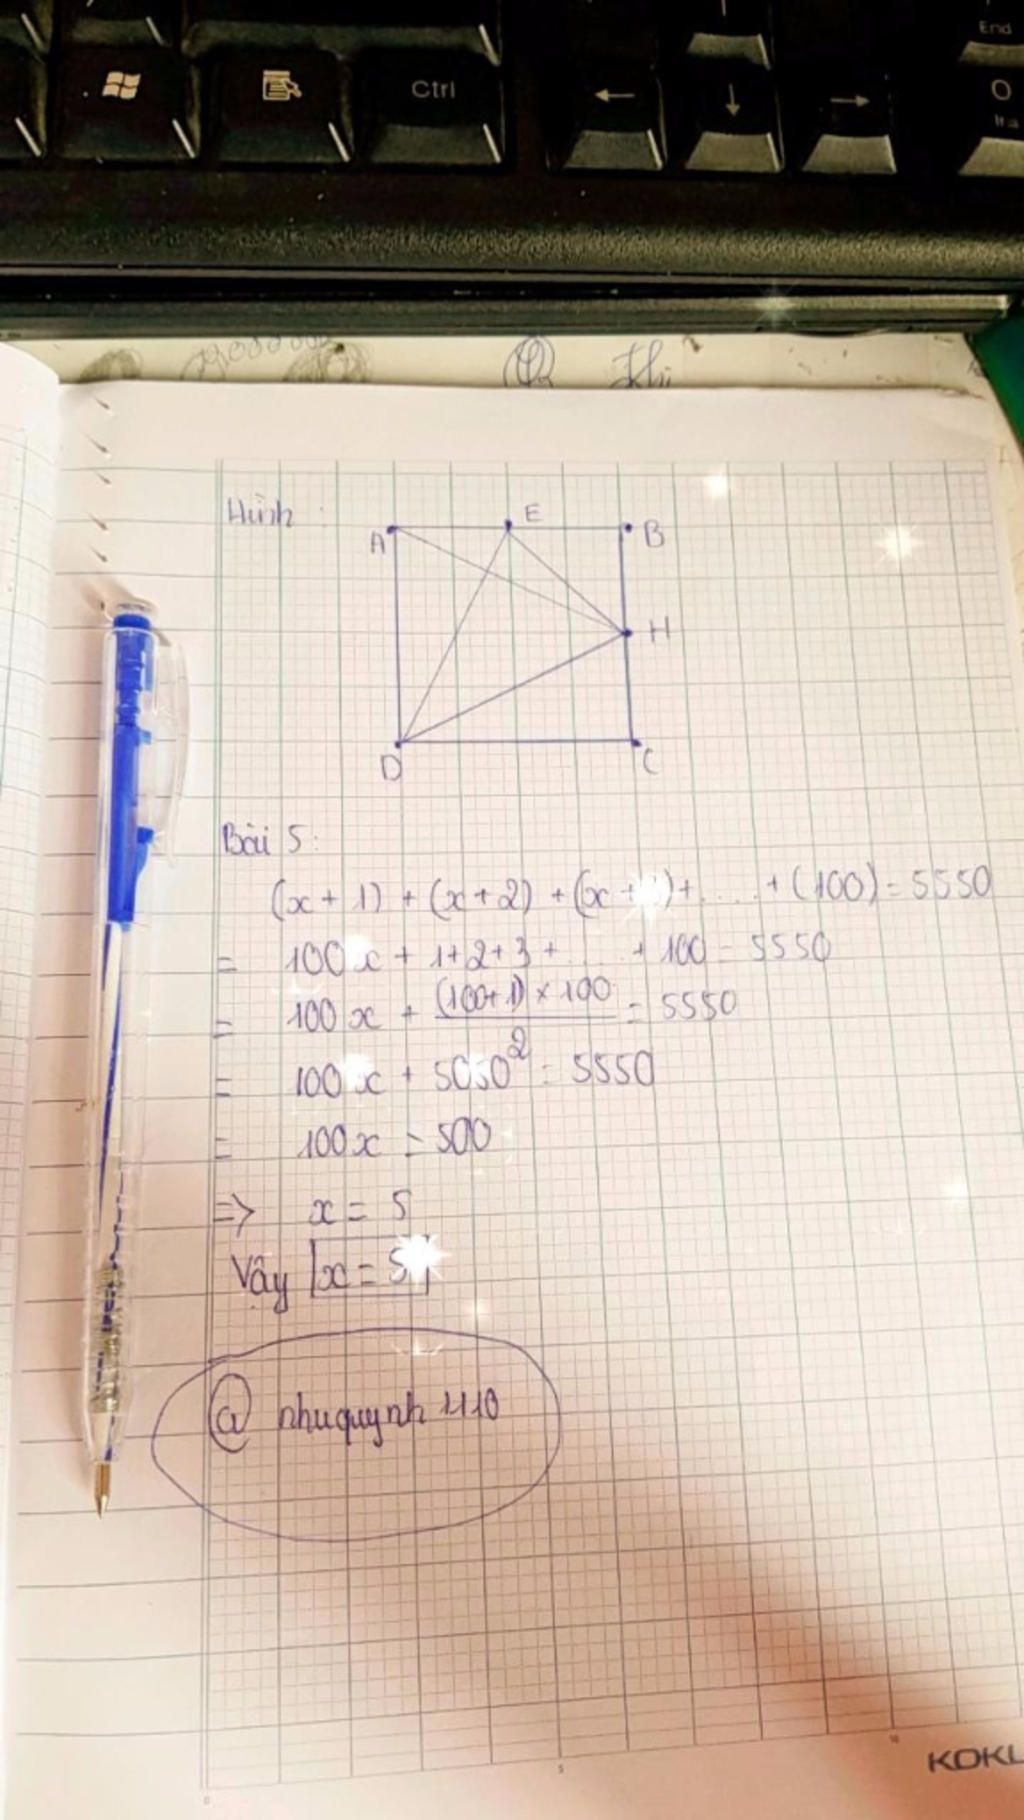 Ctrl
End
0
Ins
Khi
Hình :
A E B
H
D C
Bài 5:
(x + 1) + (x + 2) + (x + ) + .... + (100) = 5550
= 100x + 1 + 2 + 3 + ... + 100 = 5550
= 100x + (100+1) × 100 / 2 = 5550
= 100x + 5050 = 5550
= 100x = 500
=> x = 5
Vậy x = 5
@ nhuquynh 1110
0 5 10